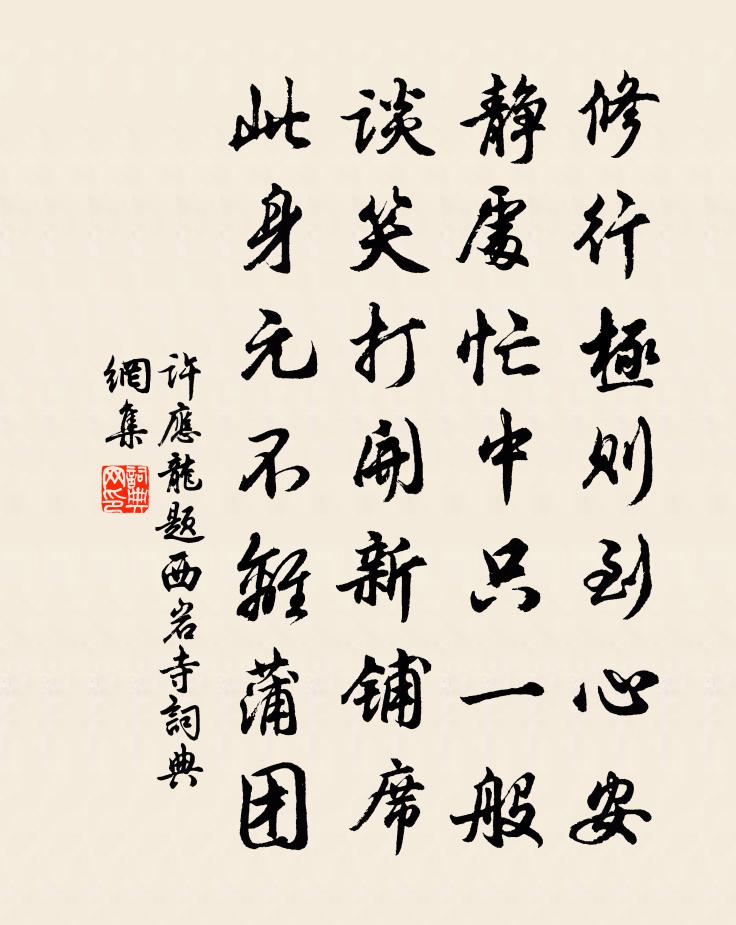 修行極则到心安
静處忙中只一般
谈笑打開新铺席
此身元不離蒲团
许應龍题西岩寺詞典
網集
詞典
网印